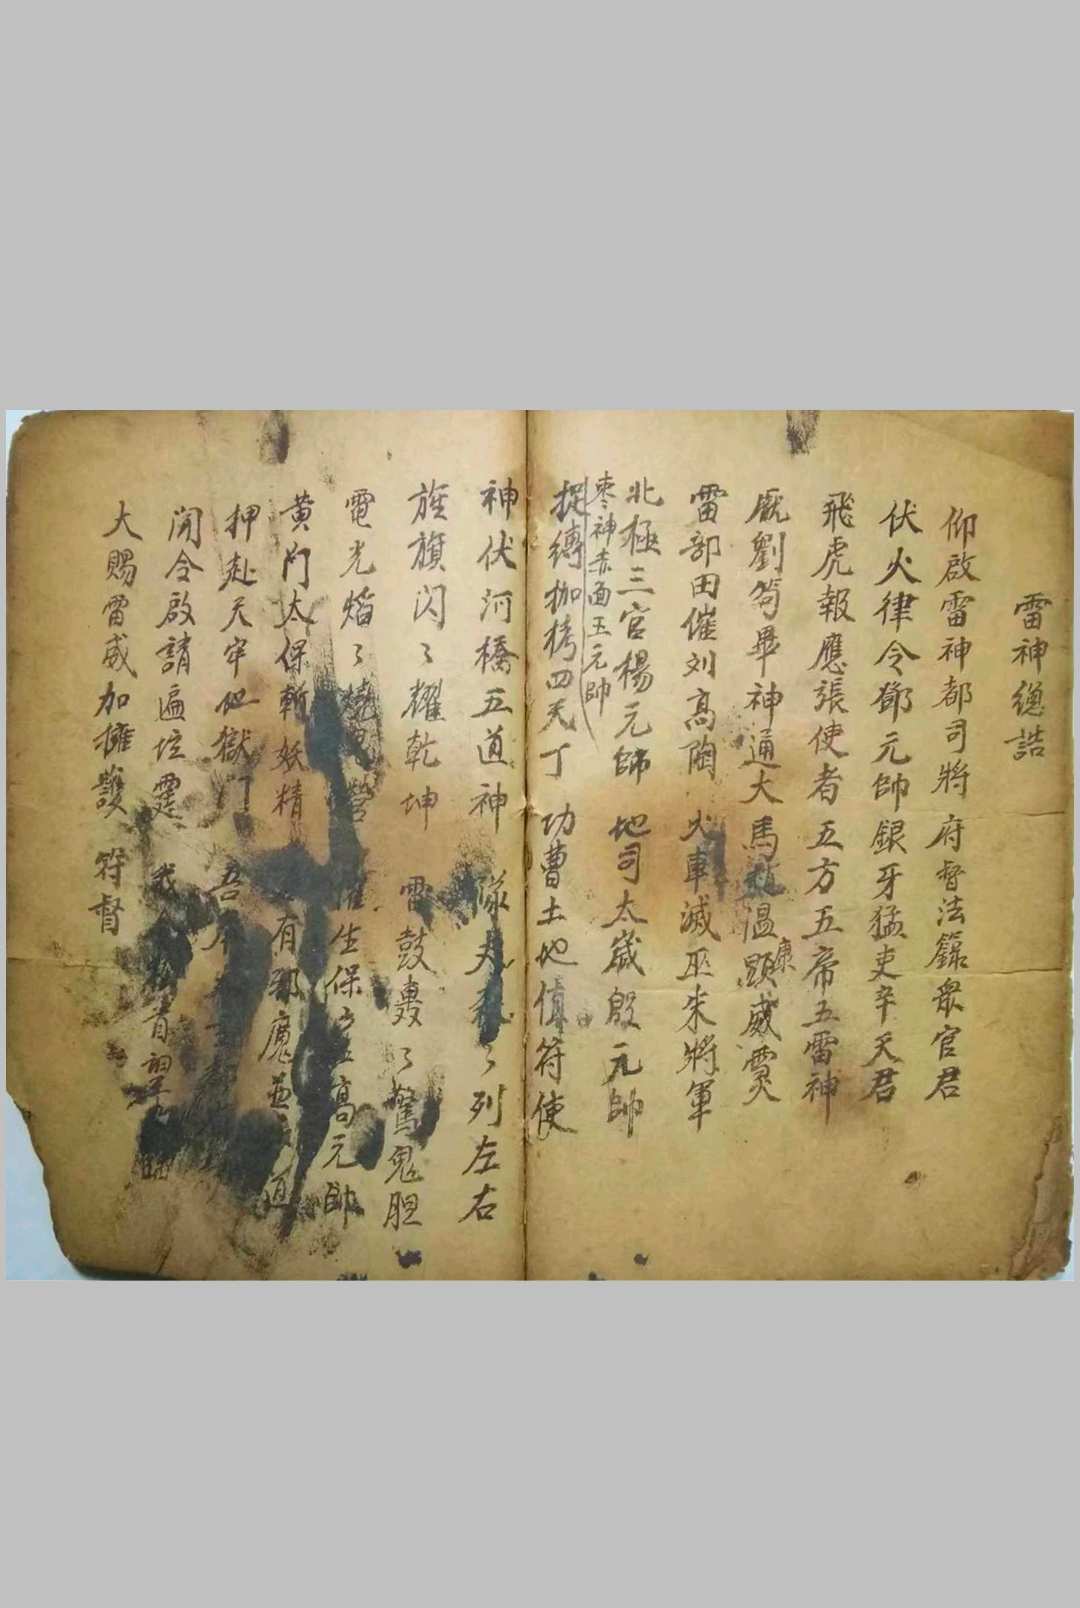 雷神總誥
仰啟雷神都司將 府督法籙眾官君
伏火律令鄧元帥 銀牙猛吏辛天君
飛虎報應張使者 五方五帝五雷神
厭劉茍畢神通大 馬 溫康顕威靈
雷部田催刘高陶 火車滅巫朱將軍
北極三官楊元帥 地司太歲殷元帥
枣神赤面王元帥
捉縛枷栲四天丁 功曹土地值符使
神伏河橋五道神 隊 列左右
旌旗閃〻耀乾坤 雷鼓轟〻驚鬼胆
電光焰〻燒 營 催生保 高元帥
黄门太保斬妖精 有邪魔 道
押赴天牢地獄门 吾
闻令啟請遍坛霆 我 首
大賜雷威加擁護 符督